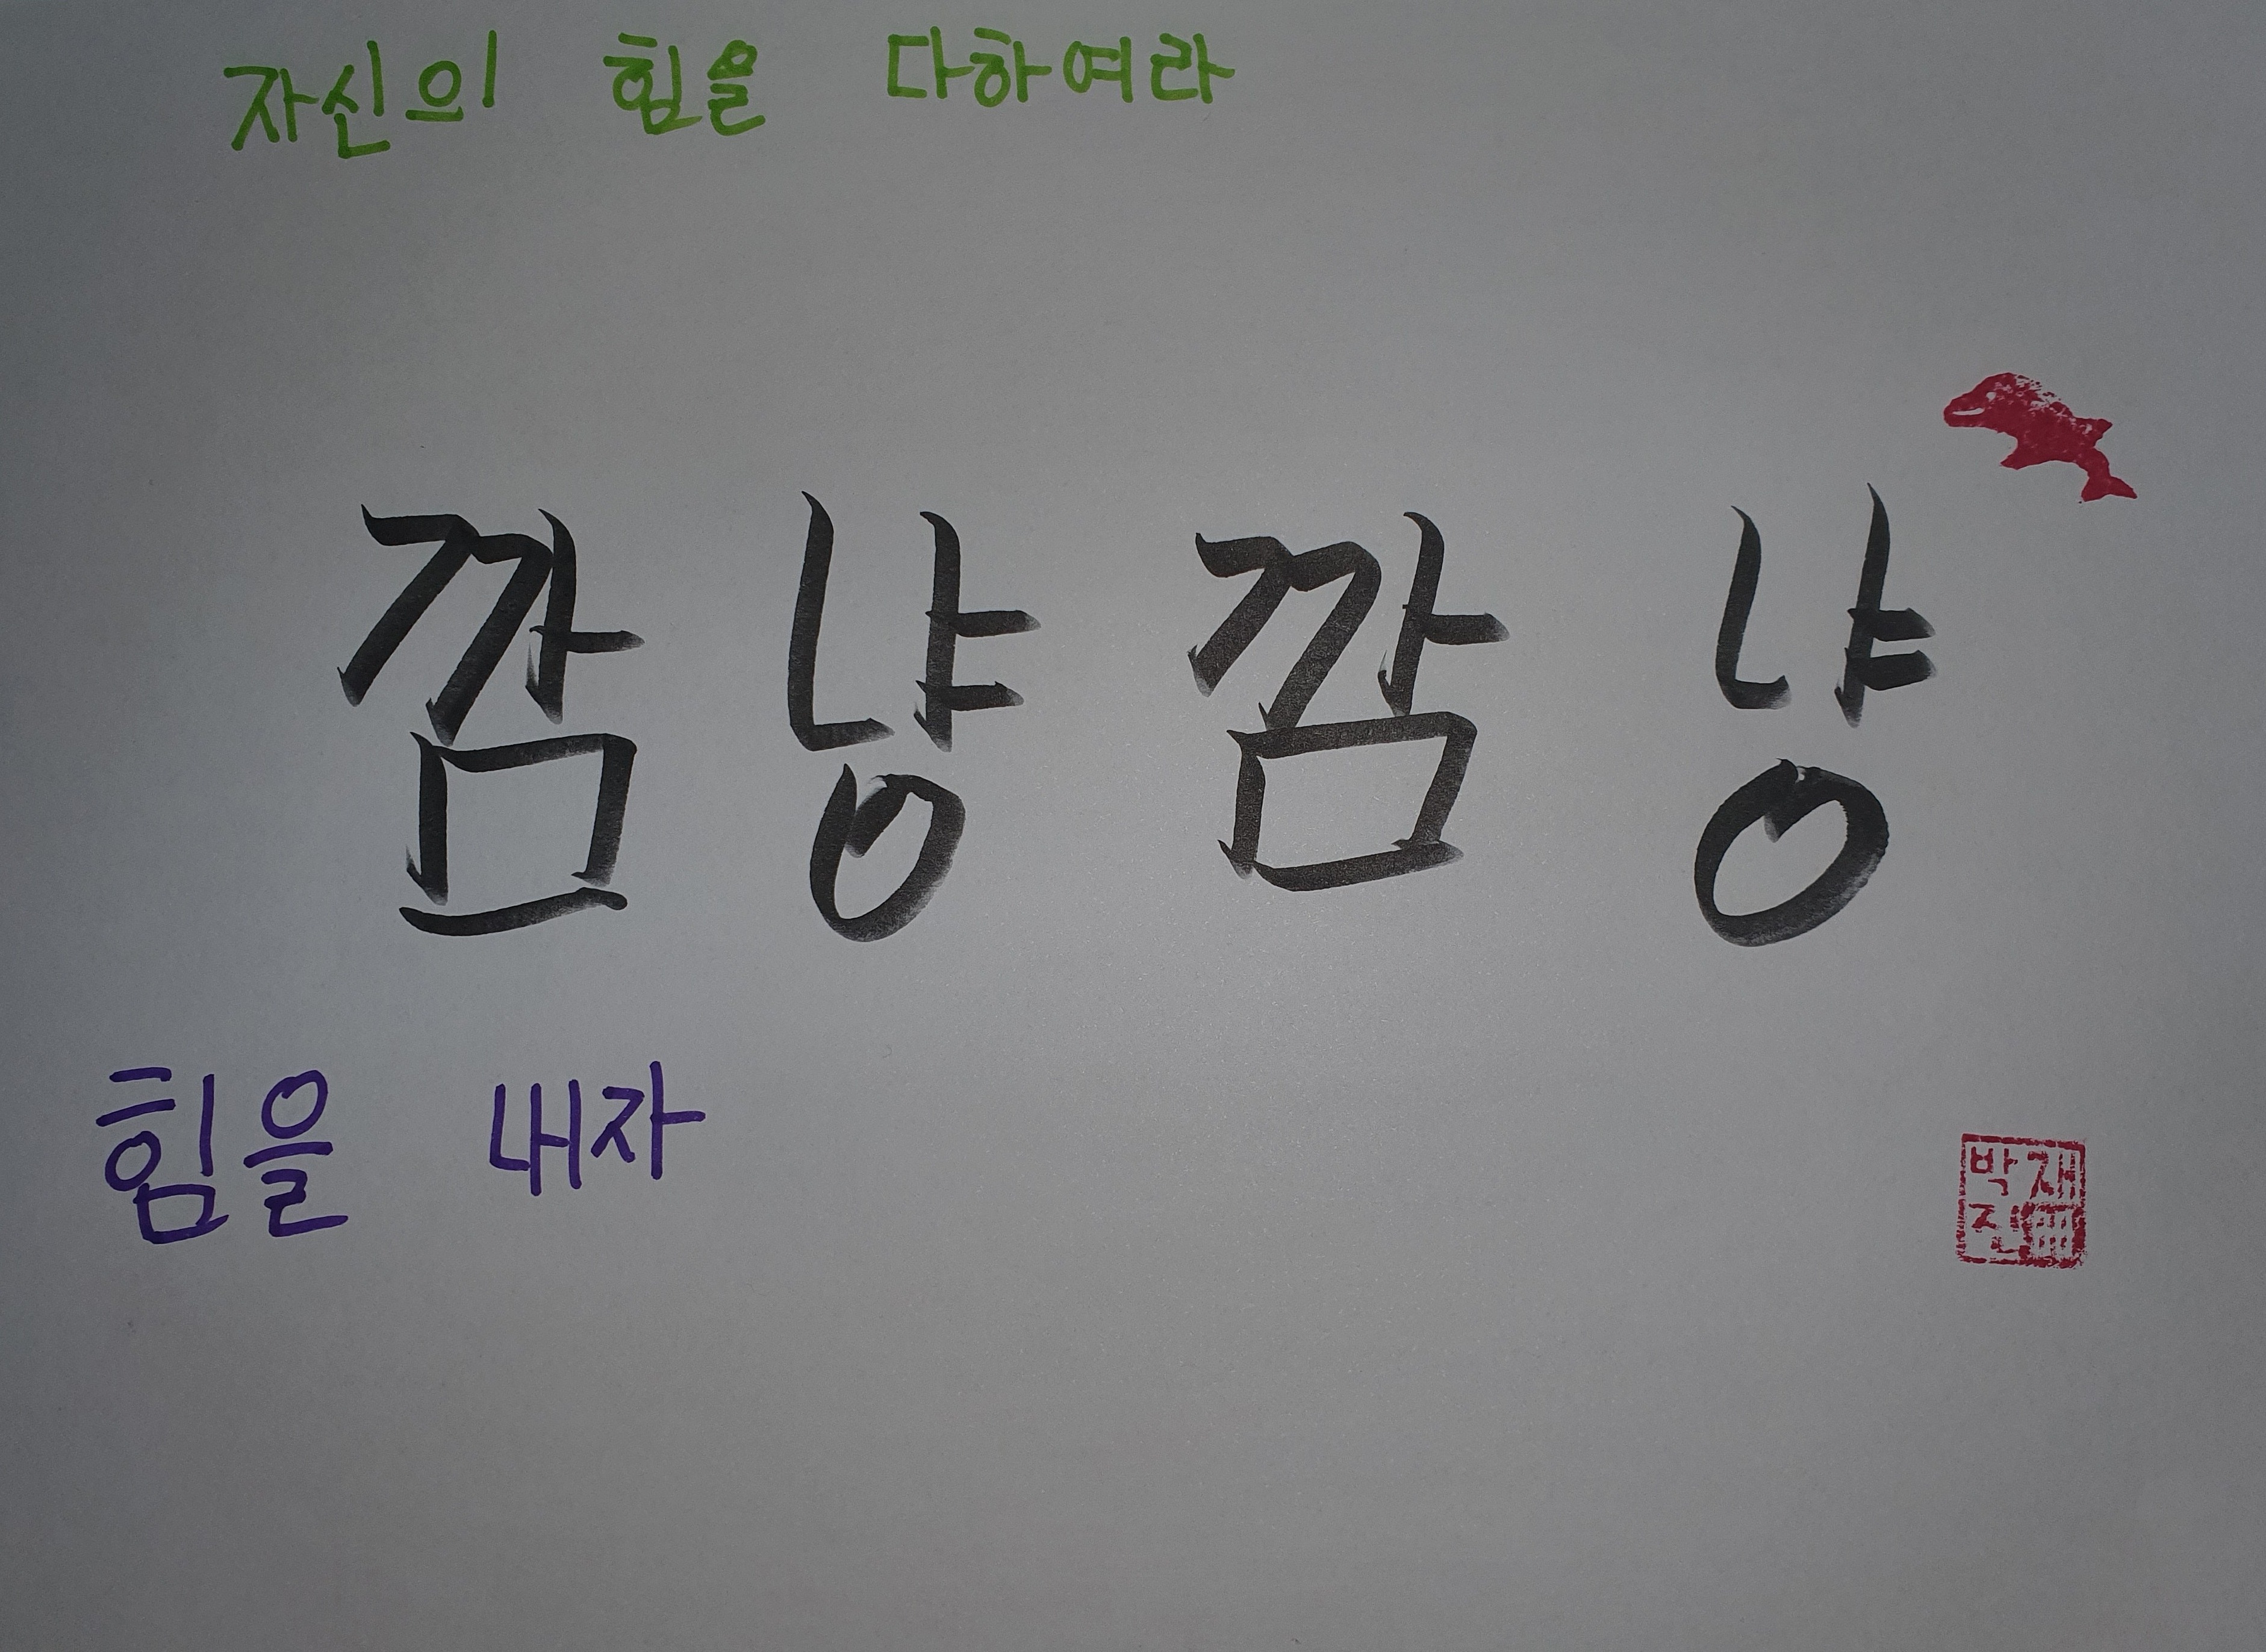 자신의 힘을 다하여라
깜냥깜냥
힘을 내자
박재
진